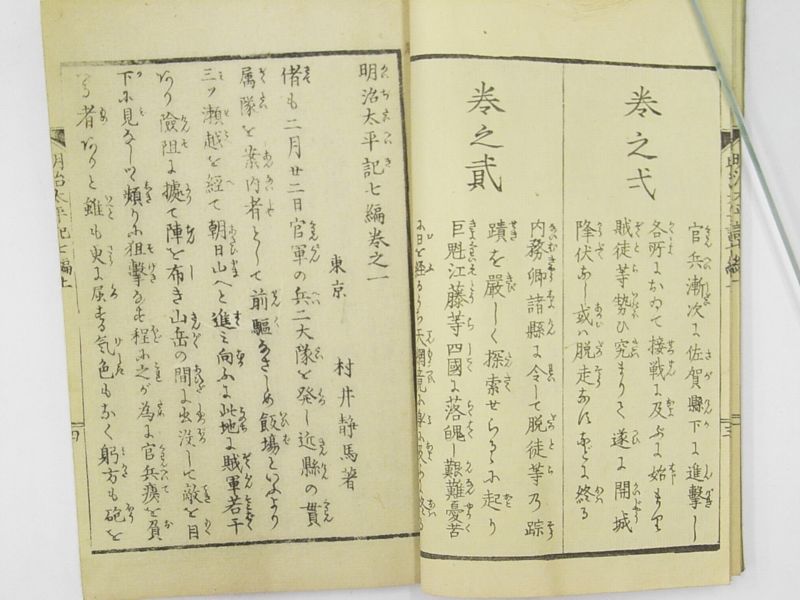 卷之弌
官兵漸次に佐賀縣下に進撃し
各所において接戦に及ぶに始まり
賊徒等勢ひ究まりて遂に開城
降伏なし或ハ脱走なすまでに終る
卷之貳
内務卿諸縣に令して脱徒等乃踪
蹟を嚴しく探索せらるゝに起り
巨魁江藤等四國に落魄し艱難憂苦
明治太平記七編卷之一
東京 村井静馬著
偖も二月廿二日官軍の兵二大隊を発し近縣の貫
属隊を案内者として前駆なさしめ飯場といふより
三ツ瀬越を経て朝日山へと進ミ向ふに此地に賊軍若干
あり險阻に據て陣を布き山岳の間に出没して敵を目
下に見なして頻りに狙撃なす程に之が為に官兵瘼を負
者ありと雖も更に屈する気色もなく躬方も砲を
明治太平記七編上